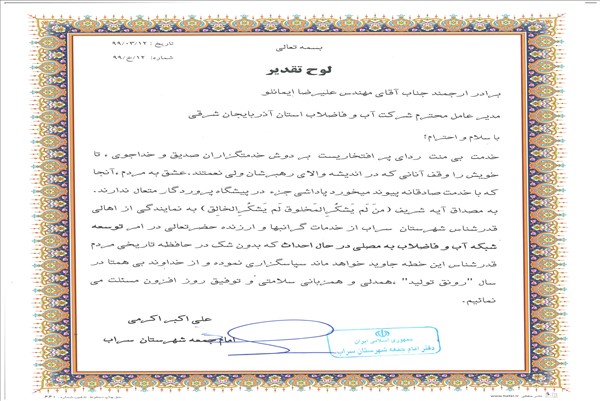 بسمه تعالی
تاریخ : ۹۹/۰۳/۱۲
شماره: ۹۹/ع/۱۲
لوح تقدیر
برادر ارجمند جناب آقای مهندس علیرضا ایمانلو
مدیر عامل محترم شرکت آب و فاضلاب استان آذربایجان شرقی
با سلام و احترام؛
خدمت بی منت ردای پر افتخاریست بر دوش خدمتگزاران صدیق و خداجوی، تا
خویش را وقف آنانی که در اندیشه والای رهبرشان ولی نعمتند. عشق به مردم، آنجا
که با خدمت صادقانه پیوند میخورد پاداشی جزء در پیشگاه پروردگار متعال ندارند.
به مصداق آیه شریف (مَنْ لَم یَشکُرِالمَخلوق لَم یَشکُرِالخالِق) به نمایندگی از اهالی
قدرشناس شهرستان سراب از خدمات گرانبها و ارزنده حضرتعالی در امر توسعه
شبکه آب و فاضلاب به مصلی در حال احداث که بدون شک در حافظه تاریخی مردم
قدرشناس این خطه جاوید خواهد ماند سپاسگزاری نموده و از خداوند بی همتا در
سال "رونق تولید" ،همدلی و همزبانی سلامتی و توفیق روز افزون مسئلت می
نمائیم.
علی اکبر اکرمی
امام جمعه شهرستان سراب
جمهوری اسلامی ایران
دفتر امام جمعه شهرستان سراب